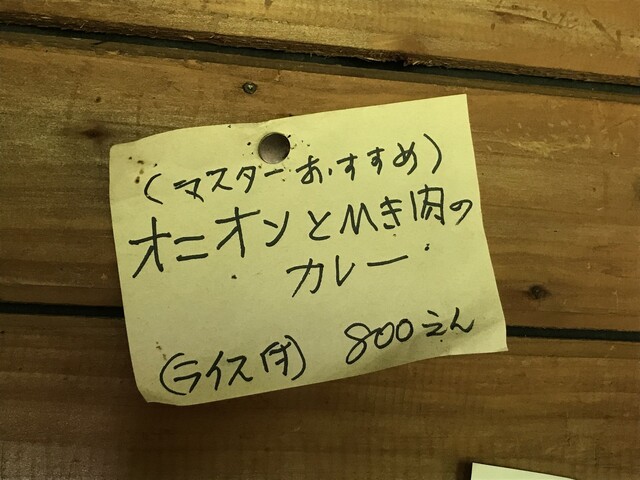 (マスターおすすめ)
オニオンとひき肉の
カレー
(ライス付) 800えん